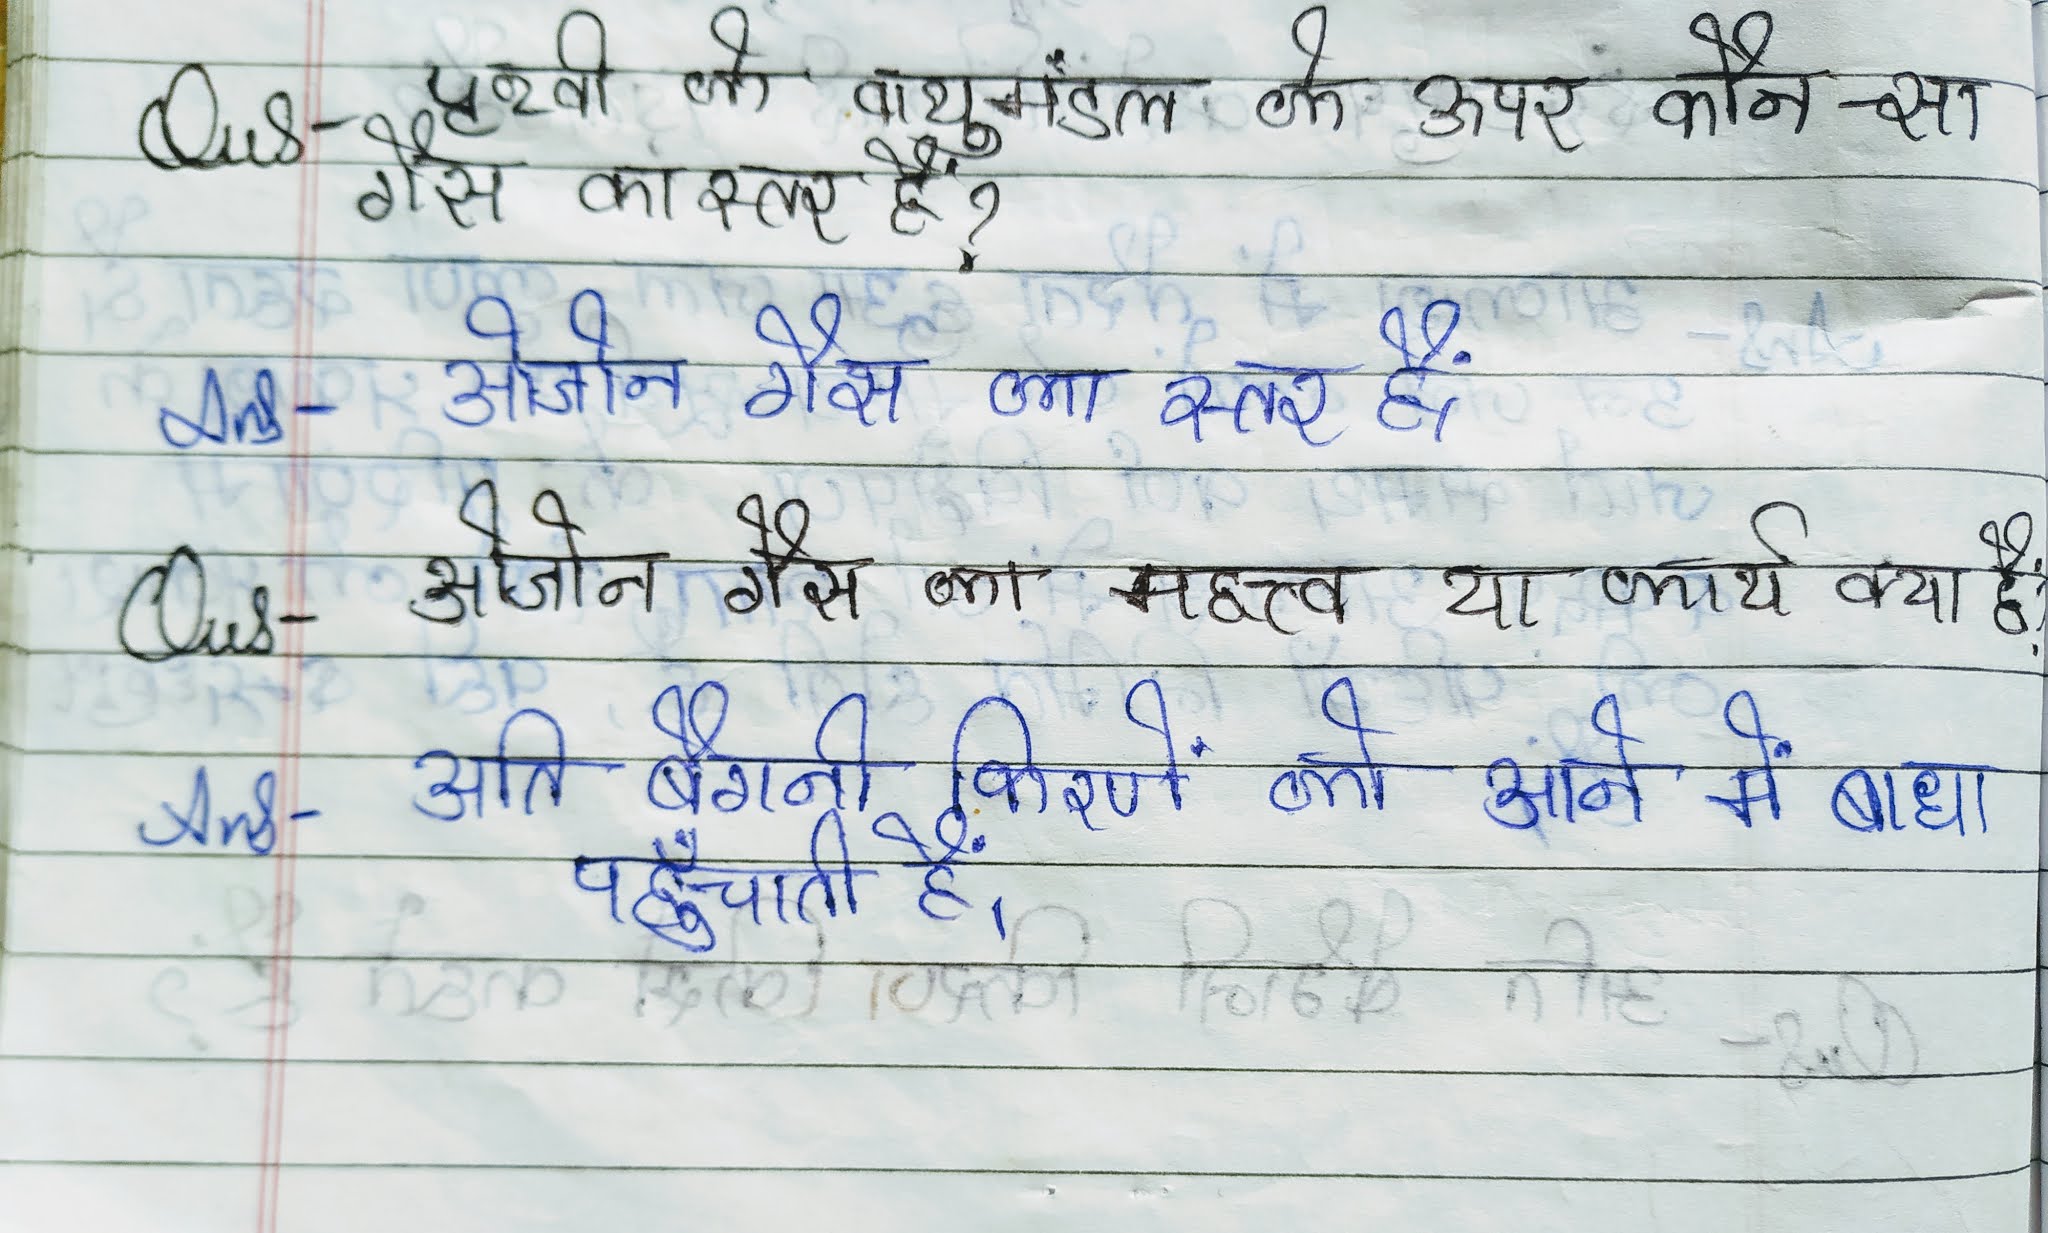 Qus- पृथ्वी के वायुमंडल के ऊपर कौन-सा
गैस का स्तर हैं?
Ans- ओजोन गैस का स्तर हैं।
Qus- ओजोन गैस का महत्त्व या कार्य क्या हैं?
Ans- अति बैगनी किरणों को आने में बाधा
पहुँचाती हैं।